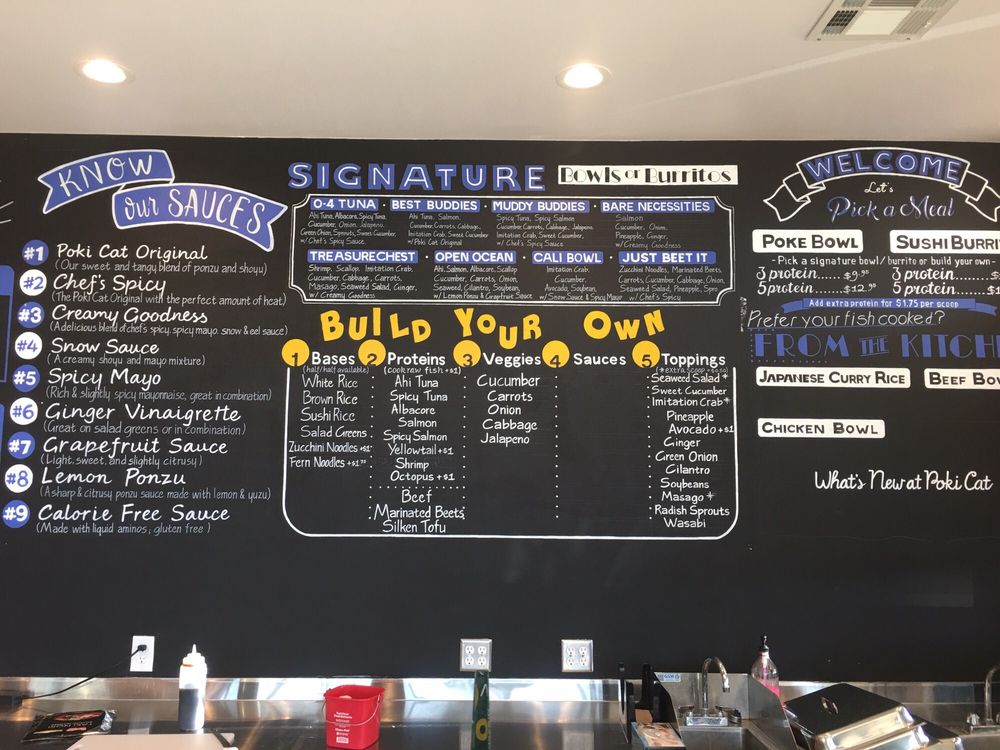 KNOW
our SAUCES
#1 Poki Cat Original
(Our sweet and tangy blend of ponzu and shoyu)
#2 Chef's Spicy
(The Poki Cat Original with the perfect amount of heat)
#3 Creamy Goodness
(A delicious blend of chef's spicy, spicy mayo, snow & eel sauce)
#4 Snow Sauce
(A creamy shoyu and mayo mixture)
#5 Spicy Mayo
(Rich & slightly spicy mayonnaise, great in combination)
#6 Ginger Vinaigrette
(Great on salad greens or in combination)
#7 Grapefruit Sauce
(Light, sweet, and slightly citrusy)
#8 Lemon Ponzu
(A sharp & citrusy ponzu sauce made with lemon & yuzu)
#9 Calorie Free Sauce
(Made with liquid aminos; gluten free)
SIGNATURE Bowls or Burritos
O-4 TUNA · BEST BUDDIES · MUDDY BUDDIES · BARE NECESSITIES
Ahi Tuna, Albacore, Spicy Tuna
Cucumber, Onion, Jalapeno,
Green Onion, Sprouts, Sweet Cucumber
w/ Chef's Spicy Sauce
Ahi Tuna, Salmon
Cucumber, Carrots, Cabbage,
Imitation Crab, Sweet Cucumber
w/ Poki Cat Original
Spicy Tuna, Spicy Salmon
Cucumber, Carrots, Cabbage, Jalapeno,
Imitation Crab, Sweet Cucumber,
w/ Chef's Spicy Sauce
Salmon
Cucumber, Onion,
Pineapple, Ginger,
w/ Creamy Goodness
TREASURE CHEST · OPEN OCEAN · CALI BOWL · JUST BEET IT
Shrimp, Scallop, Imitation Crab,
Cucumber, Cabbage, Carrots,
Masago, Seaweed Salad, Ginger,
w/ Creamy Goodness
Ahi, Salmon, Albacore, Scallop
Cucumber, Carrots, Onion,
Seaweed, Cilantro, Soybean,
w/ Lemon Ponzu & Grapefruit Sauce
Imitation Crab,
Cucumber,
Avocado, Soybean,
w/ Snow Sauce & Spicy Mayo
Zucchini Noodles, Marinated Beets,
Carrots, Cucumber, Cabbage, Onion,
Seaweed Salad, Pineapple,
w/ Chef's Spicy
BUILD YOUR OWN
1 Bases 2 Proteins 3 Veggies 4 Sauces 5 Toppings
(half/half available)
White Rice
Brown Rice
Sushi Rice
Salad Greens
Zucchini Noodles
Fern Noodles
(cook raw fish +$1)
Ahi Tuna
Spicy Tuna
Albacore
Salmon
Spicy Salmon
Yellowtail +$1
Shrimp
Octopus +$1
Beef
Marinated Beets
Silken Tofu
Cucumber
Carrots
Onion
Cabbage
Jalapeno
Seaweed Salad *
Sweet Cucumber
Imitation Crab *
Pineapple
Avocado +$1
Ginger
Green Onion
Cilantro
Soybeans
Masago *
Radish Sprouts
Wasabi
WELCOME
Let's
Pick a Meal
POKE BOWL SUSHI BURRI
-Pick a signature bowl/burrito or build your own-
3 protein......$9.50 3 protein......$
5 protein......$12.50 5 protein......$
Add extra protein for $1.75 per scoop
Prefer your fish cooked?
FROM THE KITCH
JAPANESE CURRY RICE BEEF BOW
CHICKEN BOWL
What's New at Poki Cat